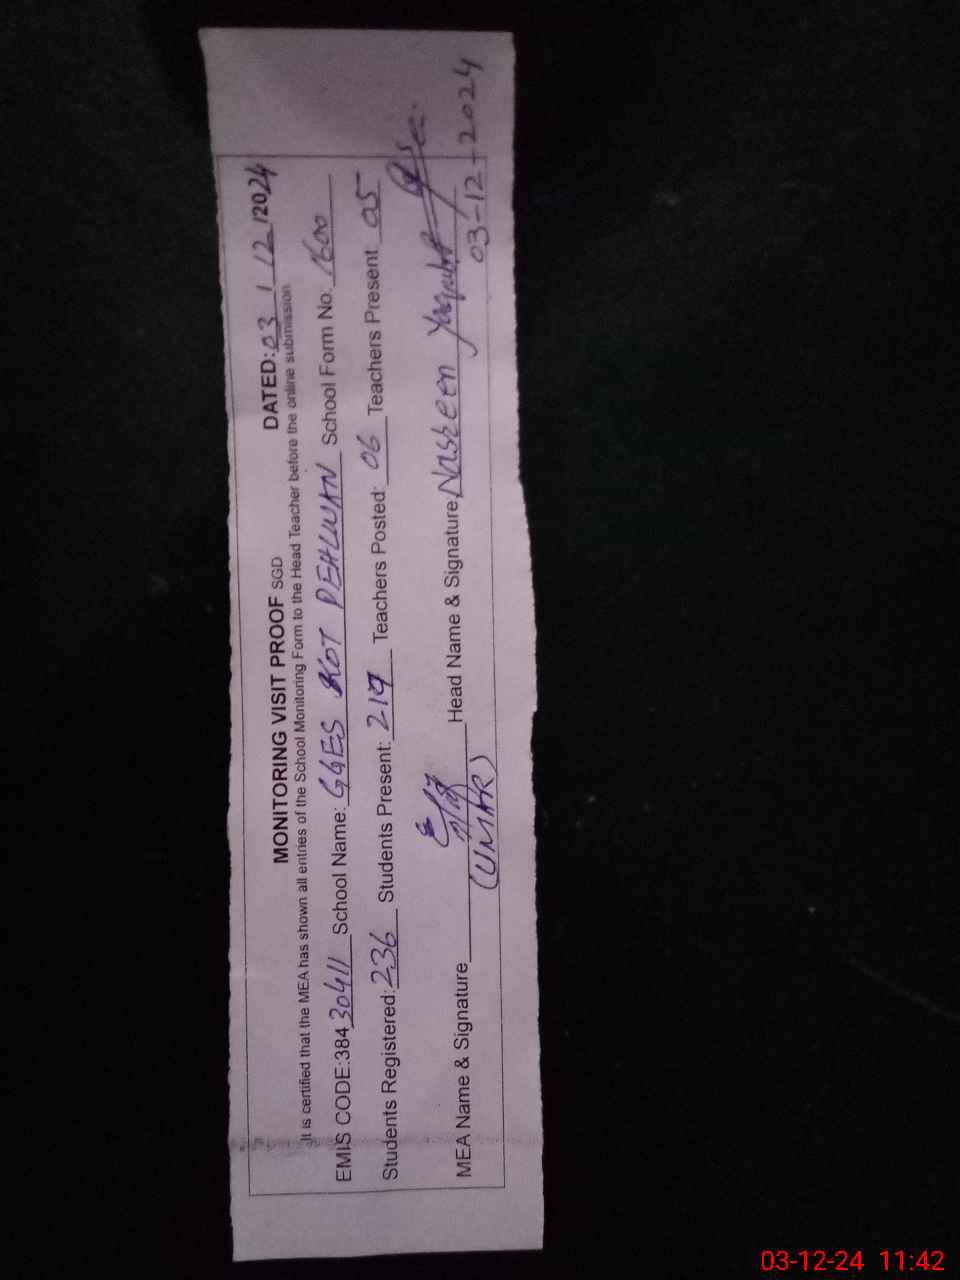 MONITORING VISIT PROOF SGD DATED: 03 / 12 /2024
It is certified that the MEA has shown all entries of the School Monitoring Form to the Head Teacher before the online submission
EMIS CODE:384 30411 School Name: GGES KOT PEHLWAN School Form No: 1600
Students Registered: 236 Students Present: 219 Teachers Posted: 06 Teachers Present: 05
MEA Name & Signature (UMAR) Head Name & Signature Nasreen Yaqub
03-12-2024
03-12-24 11:42